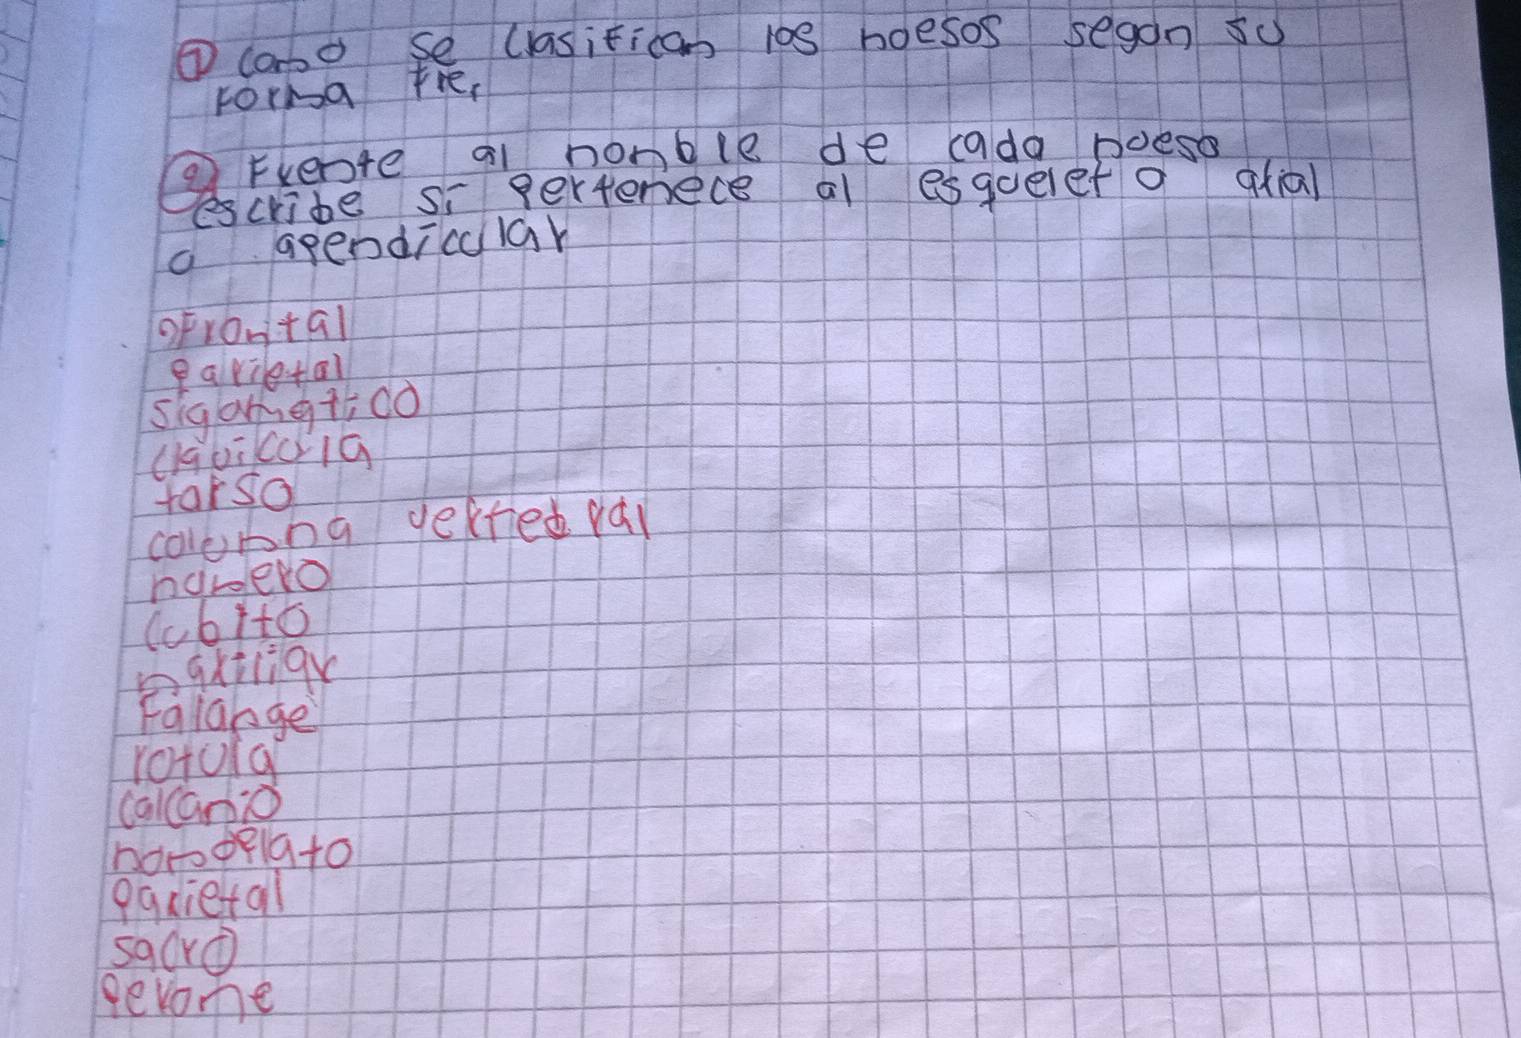 ① como se clasifican los hoesos segon su
Forma
② Frente al nonble de cada hoeso
escribe si pertenece al esqoeleto axial
o apendicular
Frontal
parietal
sigomatico
clavicola
tarso
colomna vertebral
homero
cubito
maxilar
Falange
rotula
calcanio
homoplato
parietal
sacro
perone